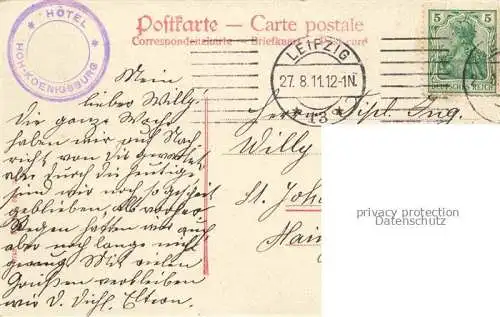 HÔTEL
HOH-KOENIGSBURG
Postkarte - Carte postale
Correspondenzkarte - Briefkaart
LEIPZIG
27.8.11.12-1N.
* 13 *
5 5
DEUTSCHES REICH
Mein
lieber Willy!
Die ganze Woche
haben wir auf Nach-
richt von Dir gewartet
aber durch die heutige
sind wir noch so
geblieben, als vorher
Regen hatten wir auch
aber noch lange nicht
genug. Mit vielen
Grüßen verbleiben
wir D. Dichl. Eltern.
Herrn Dipl. Ing.
Willy
St. Joh
Hain
privacy protection
Datenschutz